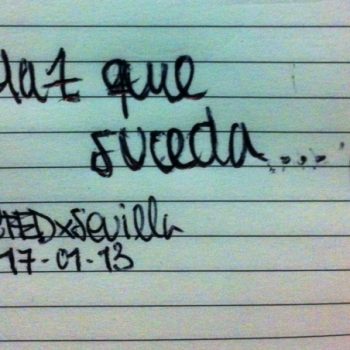 Haz que
suceda....
TEDxSevilla
17-01-13